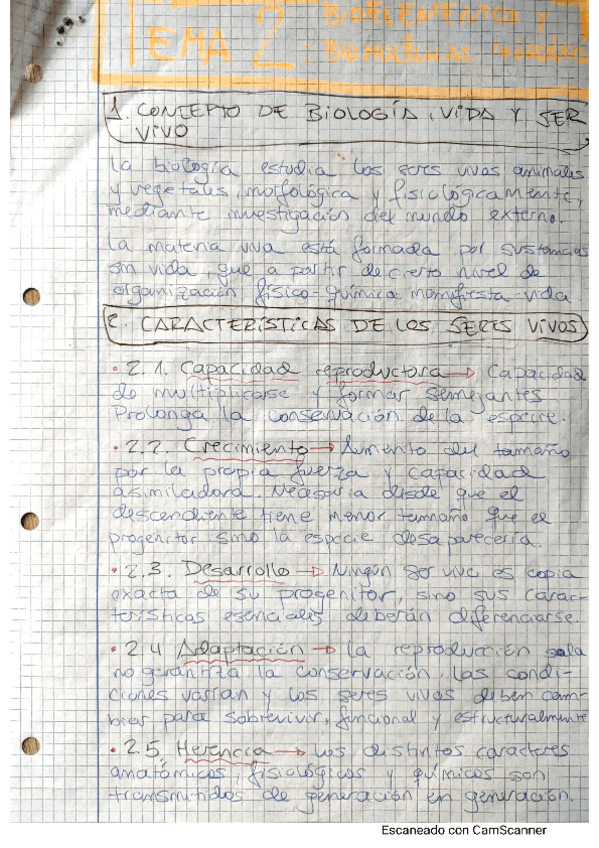 TEMA 2. BIOELEMENTOS Y
BIOMOLÉCULAS
1. CONCEPTO DE BIOLOGÍA, VIDA Y SER
VIVO
La biología estudia los seres vivos animales
y vegetales, morfológica y fisiológicamente,
mediante investigación del mundo externo.
La materia viva está formada por sustancias
sin vida, que a partir de cierto nivel de
organización físico-química manifiesta vida
2. CARACTERÍSTICAS DE LOS SERES VIVOS
• 2.1. Capacidad reproductora → Capacidad
de multiplicarse y formar semejantes
Prolonga la conservación de la especie.
• 2.2. Crecimiento → Aumento del tamaño
por la propia fuerza y capacidad
asimiladora. Necesaria desde que el
descendiente tiene menor tamaño que el
progenitor sino la especie desaparecería.
• 2.3. Desarrollo → Ningún ser vivo es copia
exacta de su progenitor, sino sus carac-
terísticas esenciales deberán diferenciarse.
• 2.4 Adaptación → La reproducción sola
no garantiza la conservación. Las condi-
ciones varían y los seres vivos deben cam-
biar para sobrevivir, funcional y estructuralmente
• 2.5. Herencia → Los distintos caracteres
anatómicos, fisiológicos y químicos son
transmitidos de generación en generación.
Escaneado con CamScanner